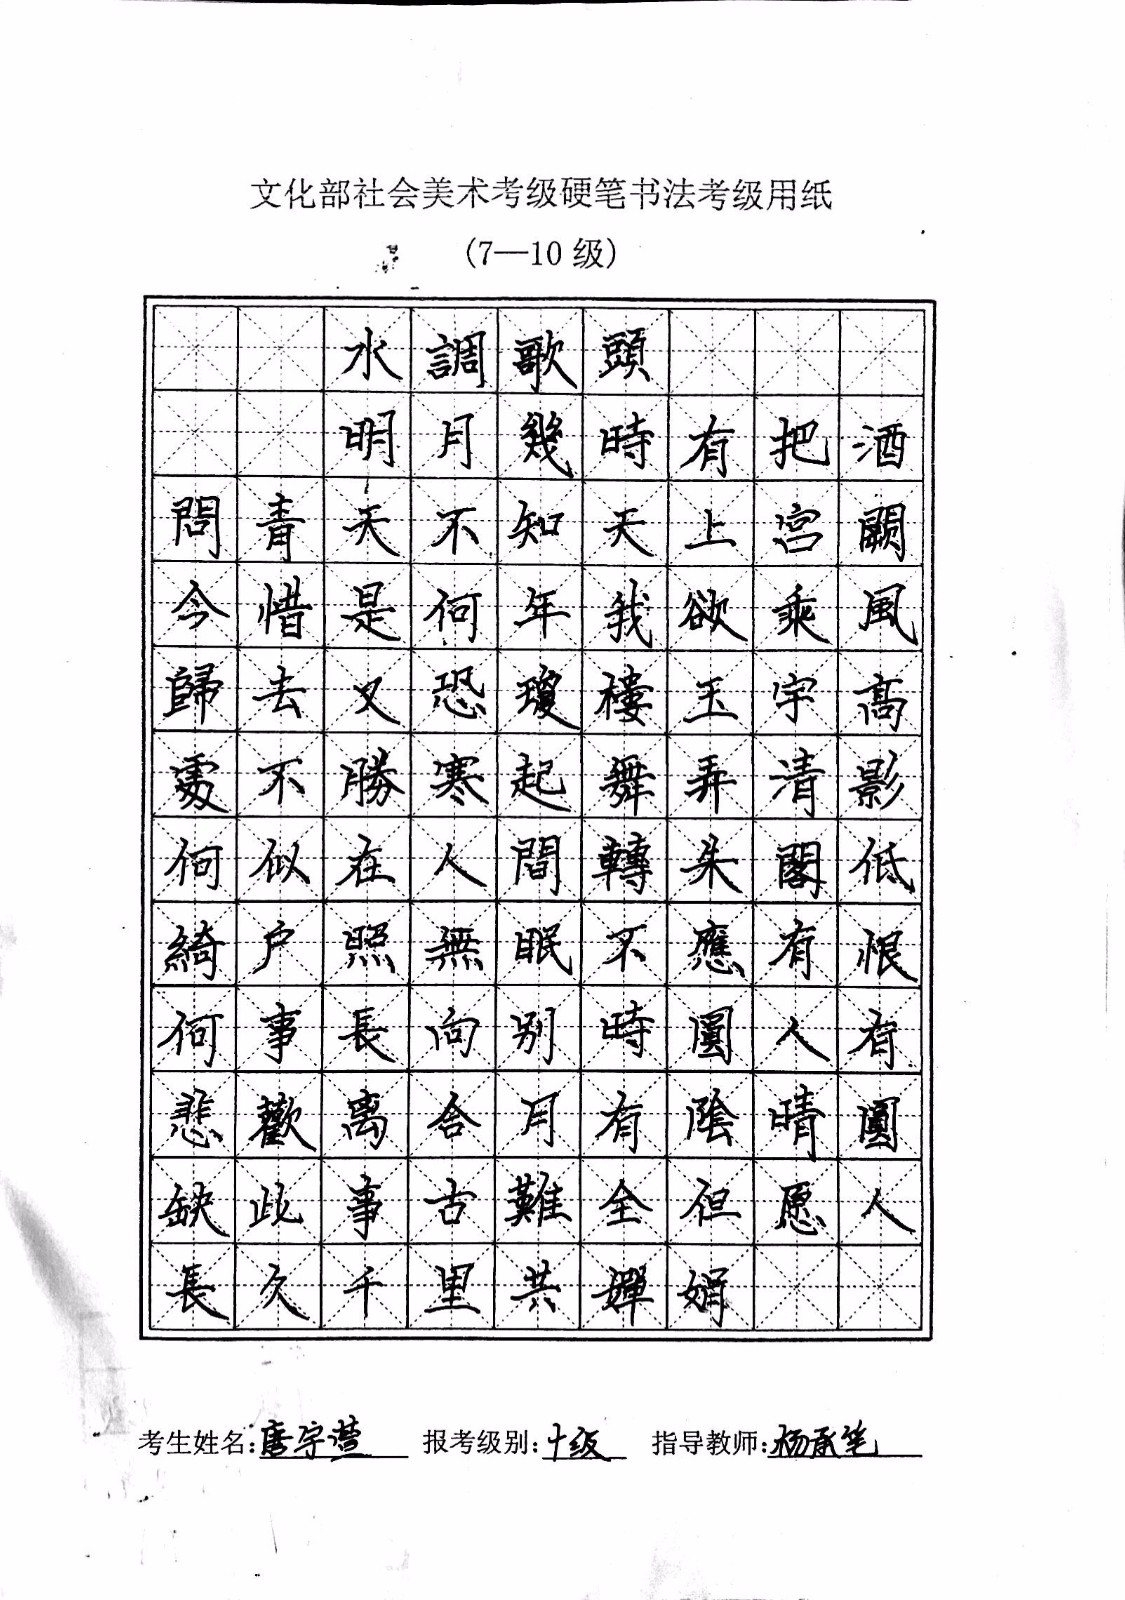 文化部社会美术考级硬笔书法考级用纸
(7—10级)
水調歌頭
明月幾時有把酒
問青天不知天上宫闕
今惜是何年我欲乘風
歸去又恐瓊樓玉宇高
處不勝寒起舞弄清影
何似在人間轉朱閣低
綺户照無眠不應有恨
何事長向别時圓人有
悲歡离合月有陰晴圓
缺此事古難全但愿人
長久千里共嬋娟
考生姓名:唐宇萱 报考级别:十级 指导教师:杨承笔